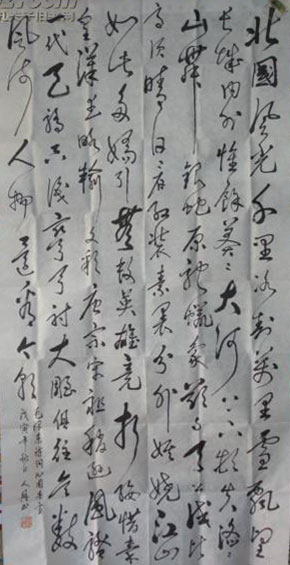 北國風光千里冰封萬里雪飄望
長城內外惟餘莽々大河上下頓失滔々
山舞銀蛇原馳蠟象欲與天公試比
高須晴日看紅裝素裹分外妖嬈江山
如此多嬌引無數英雄競折腰惜秦
皇漢武略輸文彩唐宗宋祖稍遜風騷
一代天驕只識彎弓射大雕俱往矣數
風流人物還看今朝
戊寅年